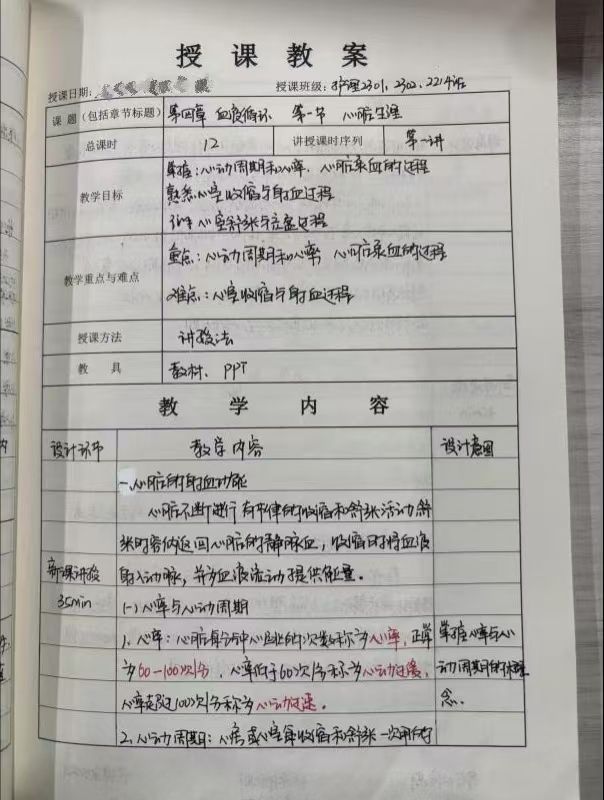 授课教案
授课日期: 授课班级: 护理2301, 2302, 2214班
课 题 (包括章节标题) 第四章 血液循环 第一节 心脏生理
总课时 12 讲授课时序列 第一讲
教学目标
掌握:心动周期和心率、心脏泵血的过程
熟悉:心室收缩与射血过程
了解:心室舒张与充盈过程
教学重点与难点
重点:心动周期和心率, 心脏泵血的过程
难点:心室收缩与射血过程
授课方法 讲授法
教 具 教材、PPT
教 学 内 容
设计环节 教学内容 设计意图
一.心脏的射血功能
心脏不断进行有节律的收缩和舒张活动,舒
张时容纳返回心脏的静脉血, 收缩时将血液
射入动脉, 并为血液流动提供能量。
新课讲授
35min
(一) 心率与心动周期
1. 心率: 心脏每分钟心跳的次数称为心率, 正常
为60-100次/分, 心率低于60次/分称为心动过缓,
心率超过100次/分称为心动过速。
掌握心率与心
动周期的概
念。
2. 心动周期: 心房或心室每收缩和舒张一次所